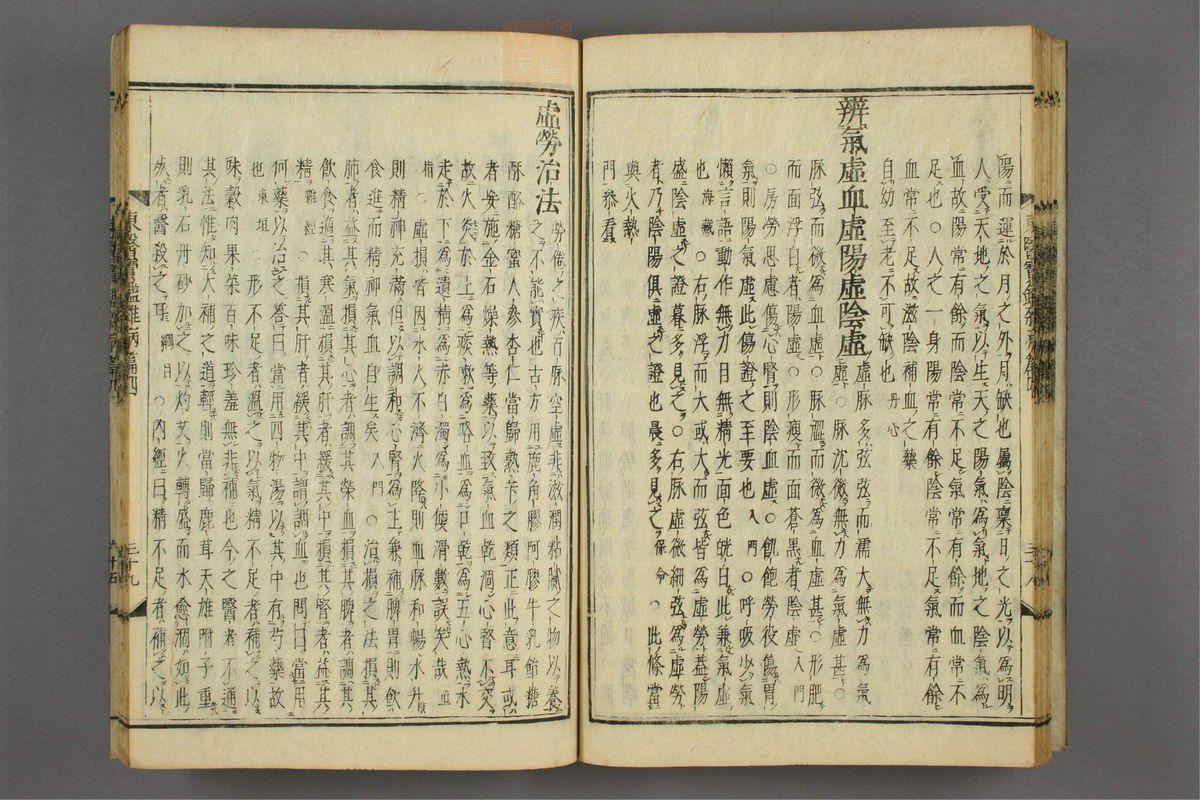 陽而運於月之外月缺也屬陰稟日之光以為明
人受天地之氣以生天之陽氣為氣地之陰氣為
血故陽常有餘而陰常不足氣常有餘而血常不
足也○人之一身陽常有餘陰常不足氣常有餘
血常不足故滋陰補血之藥
自幼至老不可缺也丹心
辨氣虛血虛陽虛陰虛虛脉多弦弦而濡大無力為氣
虛○脉沈微無力為氣虛甚○
脉弦而微為血虛○脉澁而微為血虛甚○形肥
而面浮白者陽虛○形瘦而面蒼黑者陰虛入門
○房勞思慮傷心腎則陰血虛○飢飽勞役傷胃
氣則陽氣虛此傷證之至要也入門○呼吸少氣
懶言語動作無力目無精光面色晄白此兼氣虛
也海藏○右脉浮而大或大而弦皆為虛勞盖陽
盛陰虛之證暮多見之○右脉虛微細弦為虛勞
者乃陰陽俱虛之證也晨多見之保命○此條當
與火熱
門叅看
虛勞治法勞倦之疾百脉空虛非滋潤粘膩之物以養
之不能實也古方用鹿角膠阿膠牛乳節糖
酥酪糖蜜人參杏仁當歸熟芐之類正此意耳或
者妄施金石燥熱等藥以致氣血乾涸心腎不交
故火炎於上為痰嗽為咯血為口乾為五心熱水
走於下為遺精為赤白濁為小便滑數誤矣哉直
指○虛損皆因水火不濟火降則血脉和暢水升
則精神充滿但以調和心腎為主兼補脾胃則飮
食進而精神氣血自生矣入門○治損之法損其
肺者益其氣損其心者調其榮血損其脾者調其
飮食適其寒溫損其肝者緩其中損其腎者益其
精難經○損其肝者緩其中謂調血也問曰當用
何藥以治之答曰當用四物湯以其中有芍藥故
也東垣○形不足者溫之以氣精不足者補之以
味穀肉果菜百味珍羞無非補也今之醫者不通
其法惟知大補之道輕則當歸鹿茸天雄附子重
則乳石丹砂加之以灼艾火轉盛而水愈涸如此
死者醫殺之耳綱目○內經曰精不足者補之以
東醫寶鑑雜病篇四